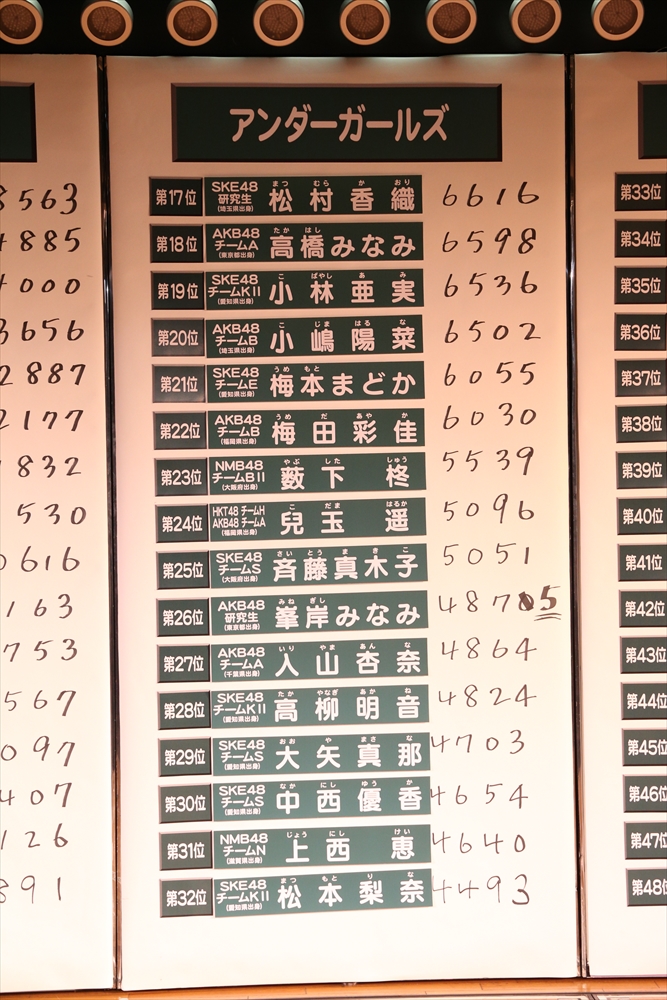 アンダーガールズ
第17位 SKE48 研究生 (埼玉県出身) 松村香織 まつ むら か おり 6616
第18位 AKB48 チームA (東京都出身) 高橋みなみ たか はし 6598
第19位 SKE48 チームKII (愛知県出身) 小林亜実 こ ばやし あ み 6536
第20位 AKB48 チームB (埼玉県出身) 小嶋陽菜 こ じま はる な 6502
第21位 SKE48 チームE (愛知県出身) 梅本まどか うめ もと 6055
第22位 AKB48 チームB (福岡県出身) 梅田彩佳 うめ だ あや か 6030
第23位 NMB48 チームBII (大阪府出身) 藪下柊 やぶ した しゅう 5539
第24位 HKT48 チームH AKB48 チームA (福岡県出身) 兒玉遥 こ だま はるか 5096
第25位 SKE48 チームS (大阪府出身) 斉藤真木子 さい とう ま き こ 5051
第26位 AKB48 研究生 (東京都出身) 峯岸みなみ みね ぎし 4875
第27位 AKB48 チームA (千葉県出身) 入山杏奈 いり やま あん な 4864
第28位 SKE48 チームKII (愛知県出身) 高柳明音 たか やなぎ あか ね 4824
第29位 SKE48 チームS (愛知県出身) 大矢真那 おお や まさ な 4703
第30位 SKE48 チームS (愛知県出身) 中西優香 なか にし ゆう か 4654
第31位 NMB48 チームN (滋賀県出身) 上西恵 じょう にし けい 4640
第32位 SKE48 チームKII (愛知県出身) 松本梨奈 まつ もと り な 4493
8563
4885
4000
3656
2887
2177
1832
530
0616
163
753
567
097
407
126
891
第33位
第34位
第35位
第36位
第37位
第38位
第39位
第40位
第41位
第42位
第43位
第44位
第45位
第46位
第47位
第48位